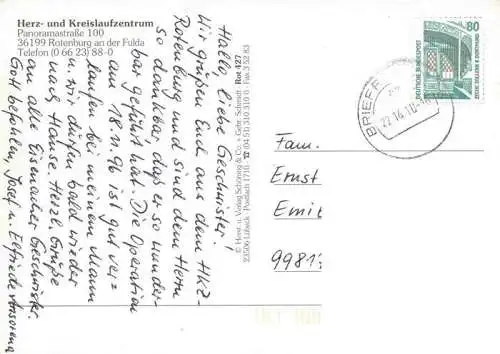 Herz- und Kreislaufzentrum
Panoramastraße 100
36199 Rotenburg an der Fulda
Telefon (0 66 23) 88-0
Hallo, liebe Geschwister!
Wir grüßen Euch aus dem HKZ-
Rotenburg und sind dem Herrn
so dankbar, daß er so wunder-
bar geführt hat. Die Operation
am 18.11.96 ist gut ver-
laufen bei meinem Mann
u. wir dürfen bald wieder
nach Hause. Herzl. Grüße
an alle Eisenacher Geschwister.
Gott befohlen, Josef u. Elfriede
© Horst u. Verlag Schöning & Co. · Gebr. Schmidt · Rot 427
23506 Lübeck · Postfach 1710 · ☎ (04 51) 310 310 · Fax 3 52 83
80
DEUTSCHE BUNDESPOST
BRIEFZ
Fam.
Ernst
Emil
9981